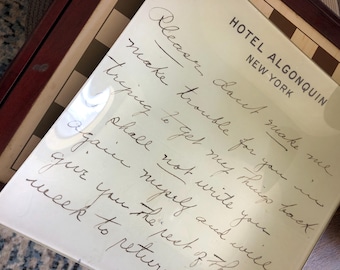 HOTEL ALGONQUIN
NEW YORK
Please, don't make me
make trouble for you in
trying to get my things back
shall not write you
again myself and will
give you the rest of the
week to return